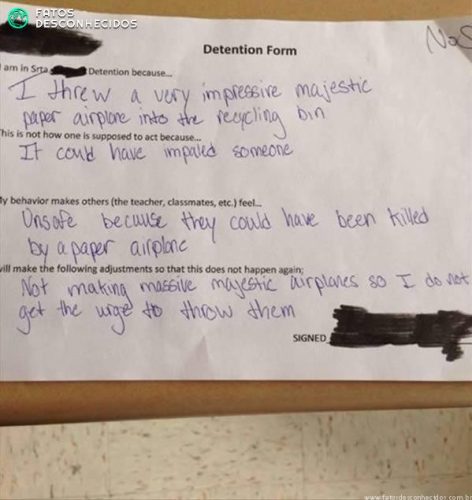 FATOS
DESCONHECIDOS
Detention Form
am in Srta. Detention because...
I threw a very impressive majestic
paper airplane into the recycling bin
his is not how one is supposed to act because...
It could have impaled someone
y behavior makes others (the teacher, classmates, etc.) feel...
Unsafe because they could have been killed
by a paper airplane
will make the following adjustments so that this does not happen again;
Not making massive majestic airplanes so I do not
get the urge to throw them
SIGNED
www.fatosdesconhecidos.com.br